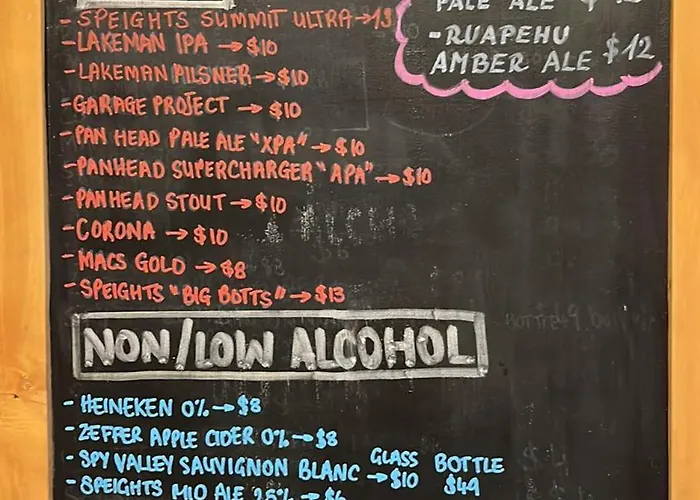 - SPEIGHTS SUMMIT ULTRA → 13
- LAKEMAN IPA → $10
- LAKEMAN PILSNER → $10
- GARAGE PROJECT → $10
- PAN HEAD PALE ALE "XPA" → $10
- PANHEAD SUPERCHARGER "APA" → $10
- PANHEAD STOUT → $10
- CORONA → $10
- MACS GOLD → $8
- SPEIGHTS "BIG BOTTS" → $13
PALE ALE $
- RUAPEHU
AMBER ALE $12
NON/LOW ALCOHOL
- HEINEKEN 0% → $8
- ZEFFER APPLE CIDER 0% → $8
GLASS BOTTLE
- SPY VALLEY SAUVIGNON BLANC → $10 $49
- SPEIGHTS MID ALE 2.5% → $6